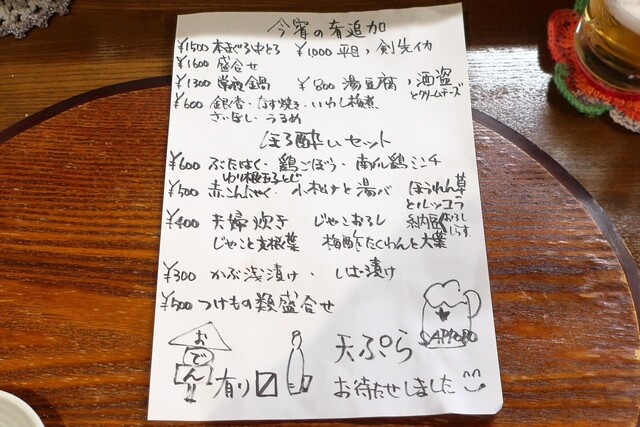 今宵の肴追加
¥1500 本まぐろ中とろ ¥1000 平目、剣先イカ
¥1600 盛合せ
¥1300 常夜鍋 ¥800 湯豆腐、酒盗とクリームチーズ
¥600 銀杏・なす焼き・いわし梅煮
さいぼし・うるめ
ほろ酔いセット
¥600 ぶたはく・鶏ごぼう・南瓜鶏ミンチ
¥500 赤こんにゃく・小松けと湯バ ほうれん草とルッコラ
¥400 夫婦炊子 じゃこおろし 納豆おろししらす
じゃこと大根葉 梅酢たくわんと大葉
¥300 かぶ浅漬け・しば漬け
¥500 つけもの類盛合せ
SAPPORO
おでん!! 有り〼 天ぷら
お待たせしました